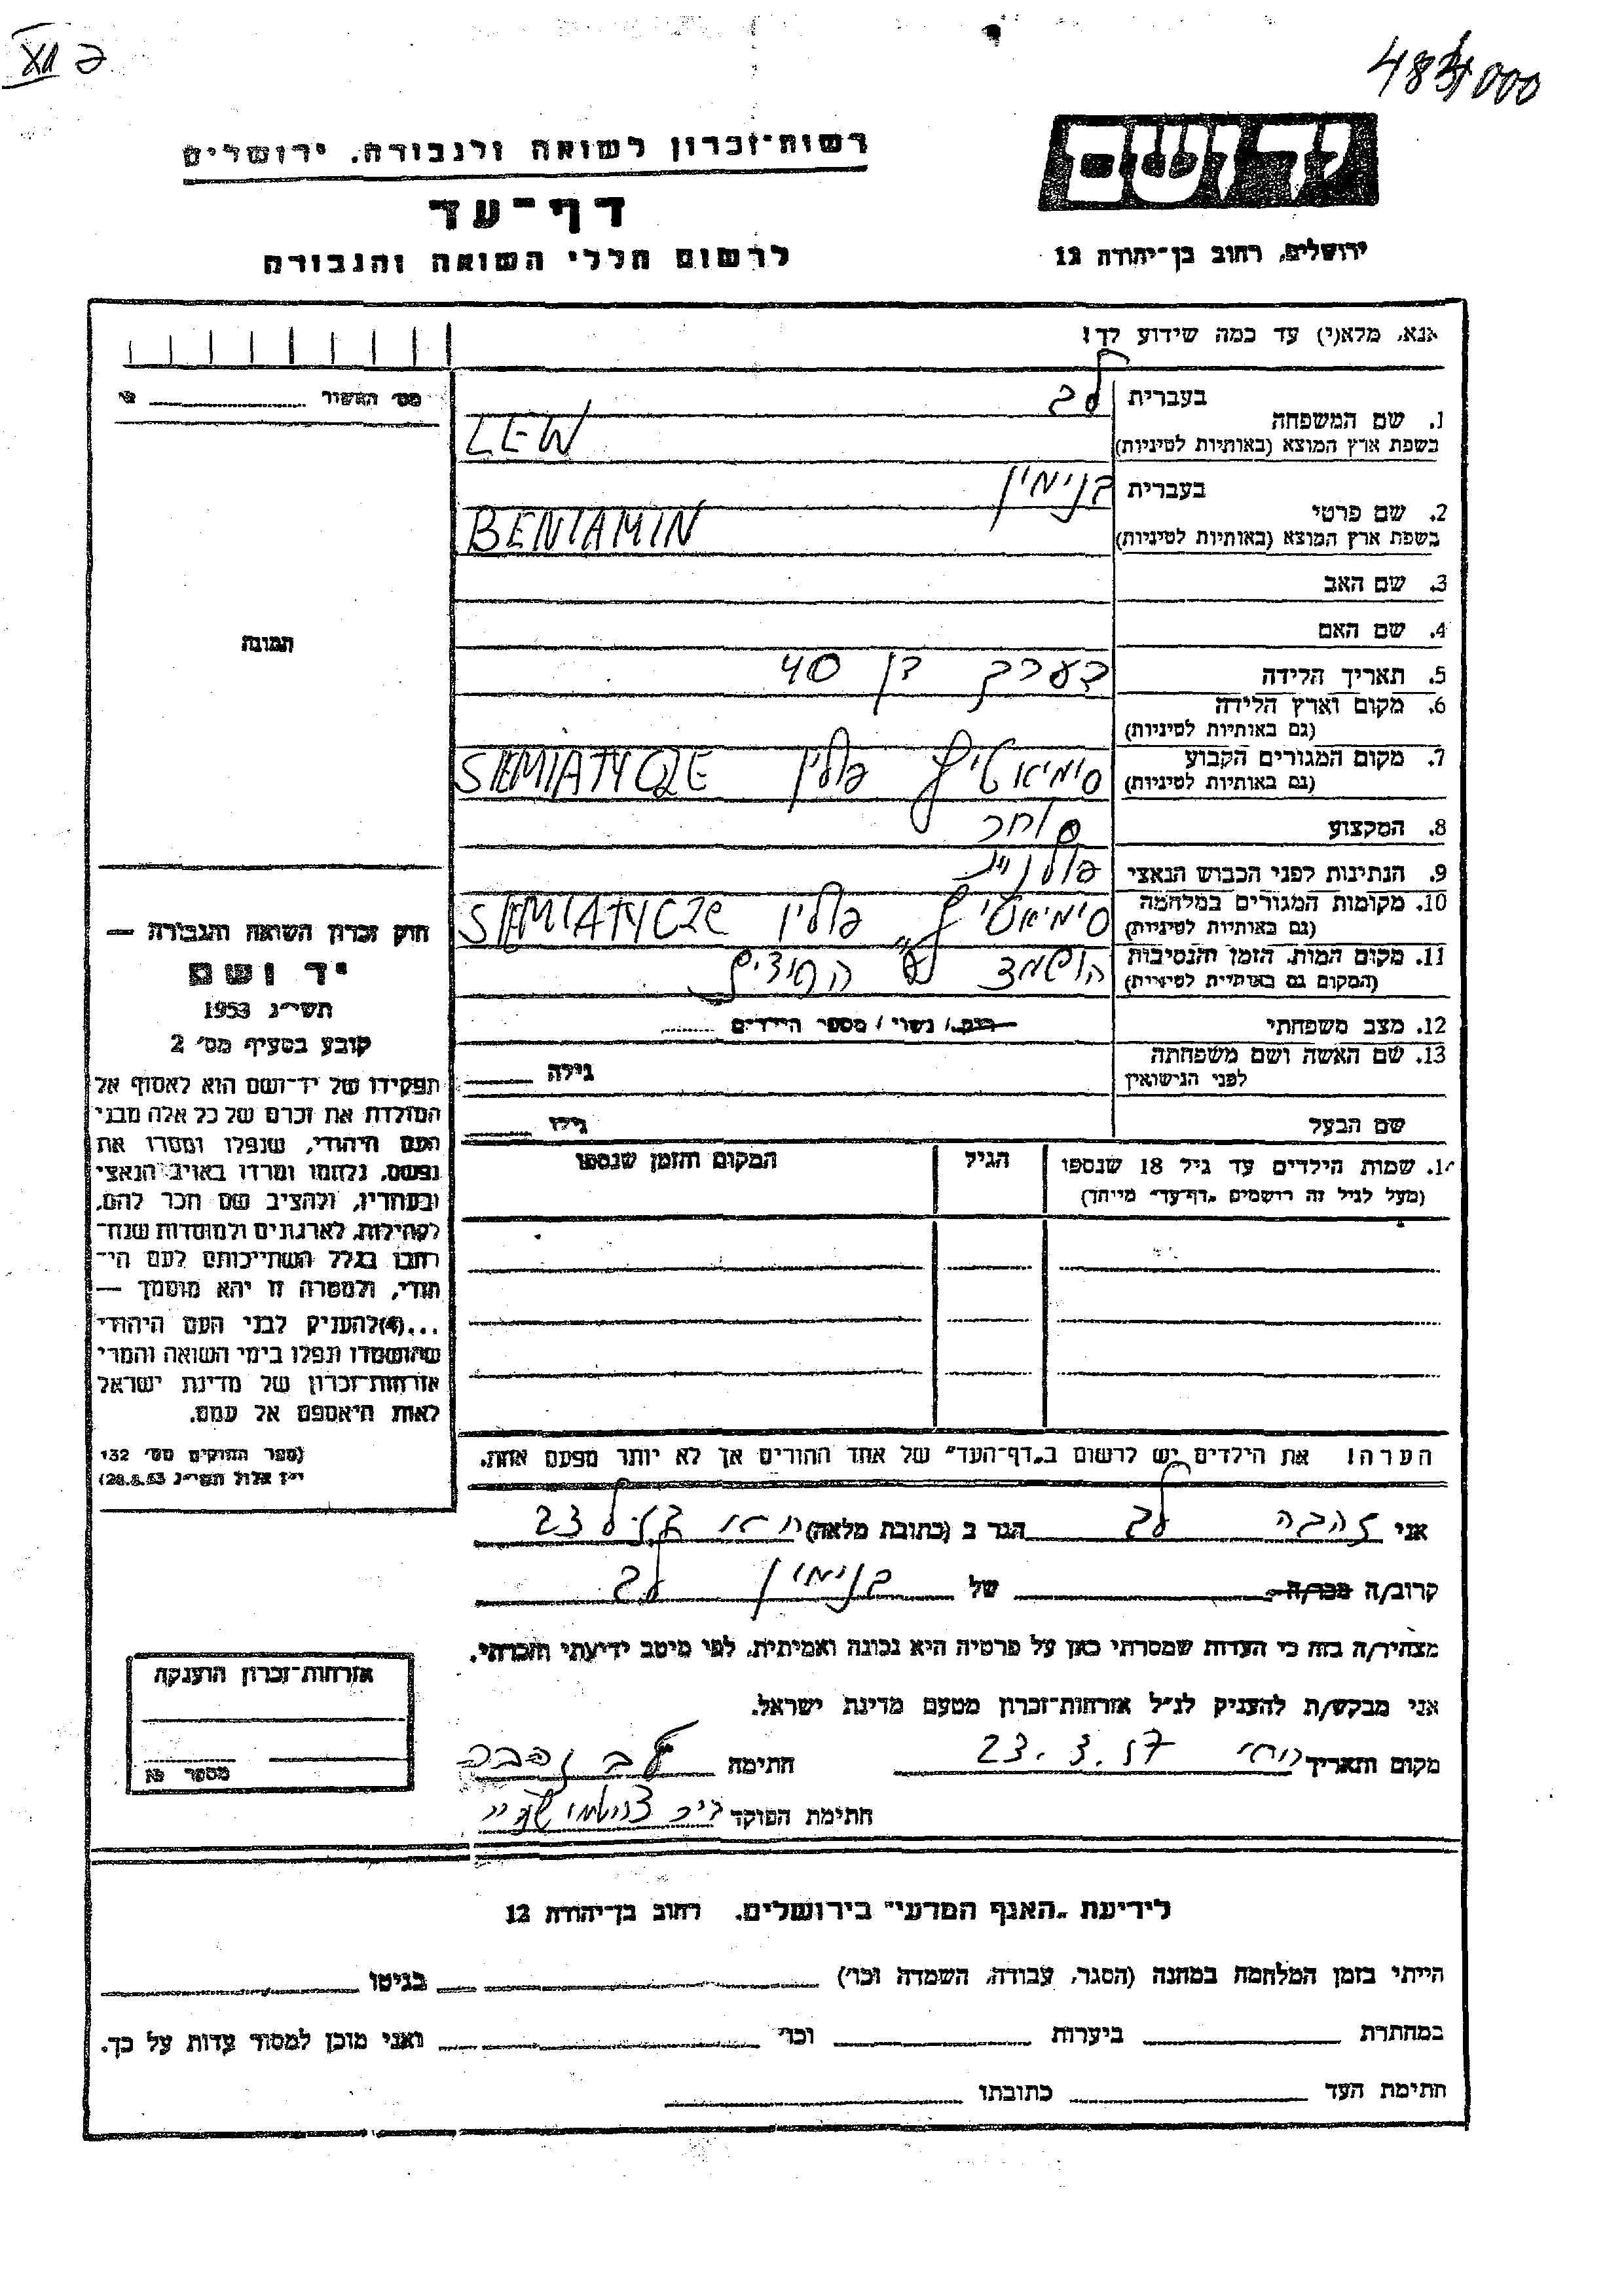 XII
484000
יד ושם
רשות־זכרון לשואה ולגבורה, ירושלים
דף־עד
לרשום חללי השואה והגבורה
ירושלים, רחוב בן־יהודה 12
אנא, מלא(י) עד כמה שידוע לך!
מס׳ האשור
1. שם המשפחה
בעברית לב
בשפת ארץ המוצא (באותיות לטיניות) LEW
2. שם פרטי
בעברית בנימין
בשפת ארץ המוצא (באותיות לטיניות) BENIAMIN
3. שם האב
4. שם האם
תמונה
5. תאריך הלידה בערך בן 40
6. מקום וארץ הלידה
(גם באותיות לטיניות)
7. מקום המגורים הקבוע
(גם באותיות לטיניות) סימיאטיץ פולין SIEMIATYCZE
8. המקצוע סוחר
9. הנתינות לפני הכבוש הנאצי פולנית
10. מקומות המגורים במלחמה
(גם באותיות לטיניות) סימיאטיץ פולין SIEMIATYCZE
11. מקום המות, הזמן והנסיבות
(המקום גם באותיות לטיניות) הושמד ע"י הנאצים
12. מצב משפחתי רווק/ נשוי / מספר הילדים
13. שם האשה ושם משפחתה
לפני הנישואין גילה
שם הבעל גילו
שמות הילדים עד גיל 18 שנספו הגיל המקום והזמן שנספו
(מעל לגיל זה רושמים „דף־עד״ מיוחד)
חוק זכרון השואה והגבורה —
יד ושם
תשי״ג 1953
קובע בסעיף מס׳ 2
תפקידו של יד־ושם הוא לאסוף אל
המולדת את זכרם של כל אלה מבני
העם היהודי, שנפלו ומסרו את
נפשם, נלחמו ומרדו באויב הנאצי
ובעוזריו, ולהציב שם וזכר להם,
לקהילות, לארגונים ולמוסדות שנח־
רבו בגלל השתייכותם לעם הי־
הודי, ולמטרה זו יהא מוסמך —
...(4)להעניק לבני העם היהודי
שהושמדו ונפלו בימי השואה והמרי
אזרחות־זכרון של מדינת ישראל
לאות היאספם אל עמם.
(ספר החוקים מס׳ 132
י״ז אלול תשי״ג 28.8.53)
הערה! את הילדים יש לרשום ב„דף־העד״ של אחד ההורים אך לא יותר מפעם אחת.
אני זהבה לב הגר ב (כתובת מלאה) 23
קרוב/ה מכר/ה של בנימין לב
מצהיר/ה בזה כי העדות שמסרתי כאן על פרטיה היא נכונה ואמיתית, לפי מיטב ידיעתי והכרתי.
אני מבקש/ת להעניק לנ״ל אזרחות־זכרון מטעם מדינת ישראל.
מקום ותאריך 23.3.57 חתימה לב זהבה
חתימת הפוקד
אזרחות־זכרון הוענקה
מספר
לידיעת „האגף המדעי״ בירושלים, רחוב בן־יהודה 12
הייתי בזמן המלחמה במחנה (הסגר, עבודה, השמדה וכו׳) בגיטו
במחתרת ביערות וכו׳ ואני מוכן למסור עדות על כך.
חתימת העד כתובתו